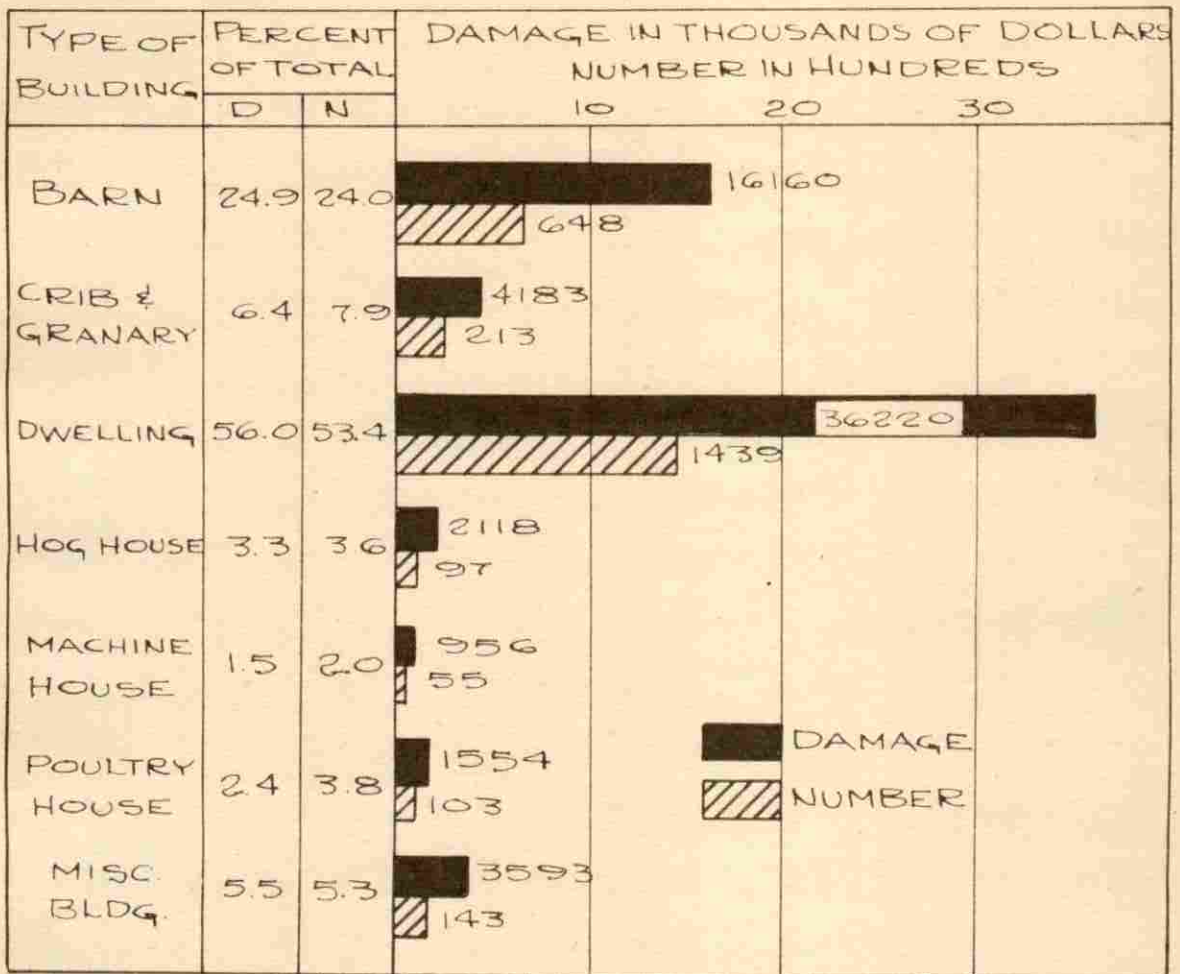 TYPE OF BUILDING
PERCENT OF TOTAL
D N
DAMAGE IN THOUSANDS OF DOLLARS
NUMBER IN HUNDREDS
10 20 30
BARN 24.9 24.0 16160
648
CRIB & GRANARY 6.4 7.9 4183
213
DWELLING 56.0 53.4 36220
1439
HOG HOUSE 3.3 3.6 2118
97
MACHINE HOUSE 1.5 2.0 956
55
POULTRY HOUSE 2.4 3.8 1554
103
MISC. BLDG. 5.5 5.3 3593
143
DAMAGE
NUMBER